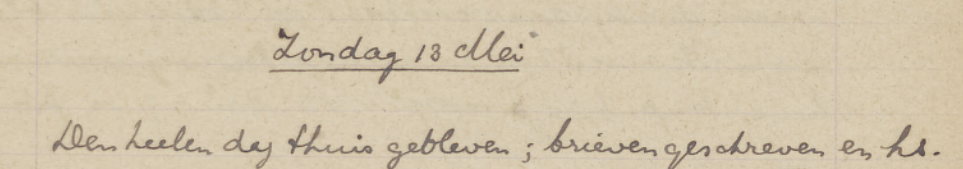 Zondag 13 Mei
Den heelen dag thuis gebleven; brieven geschreven en hs.